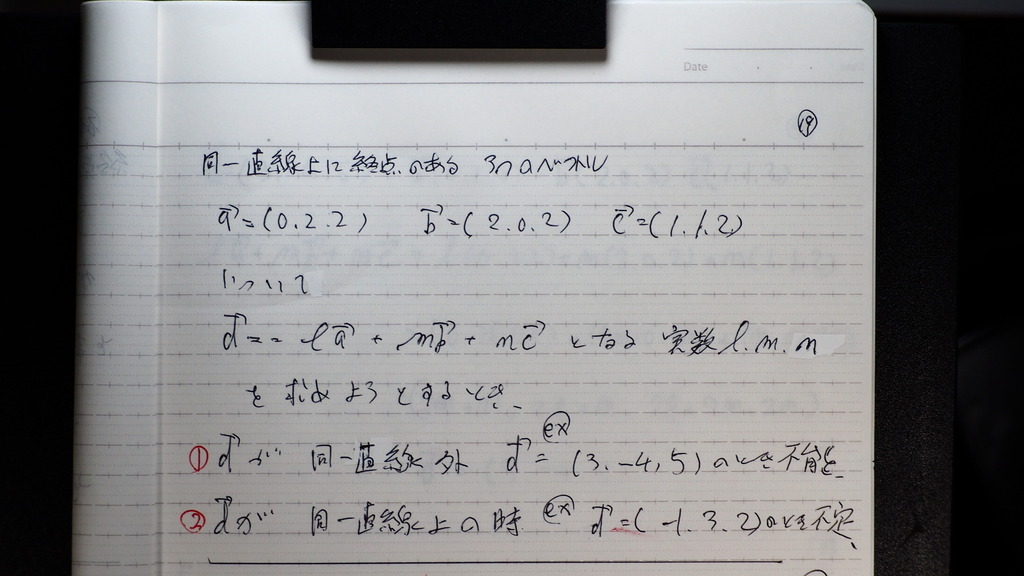 Date
⑲
同一直線上に終点のある 3つのベクトル
a⃗=(0.2.2) b⃗=(2.0.2) c⃗=(1.1.2)
について
d⃗== ℓa⃗ + mb⃗ + nc⃗ となる 実数 l.m.n
を求めようとするとき、
① d⃗が 同一直線外 ex d⃗= (3.-4,5) のとき不能、
② d⃗が 同一直線上の時 ex d⃗=(-1.3.2)のとき不定、